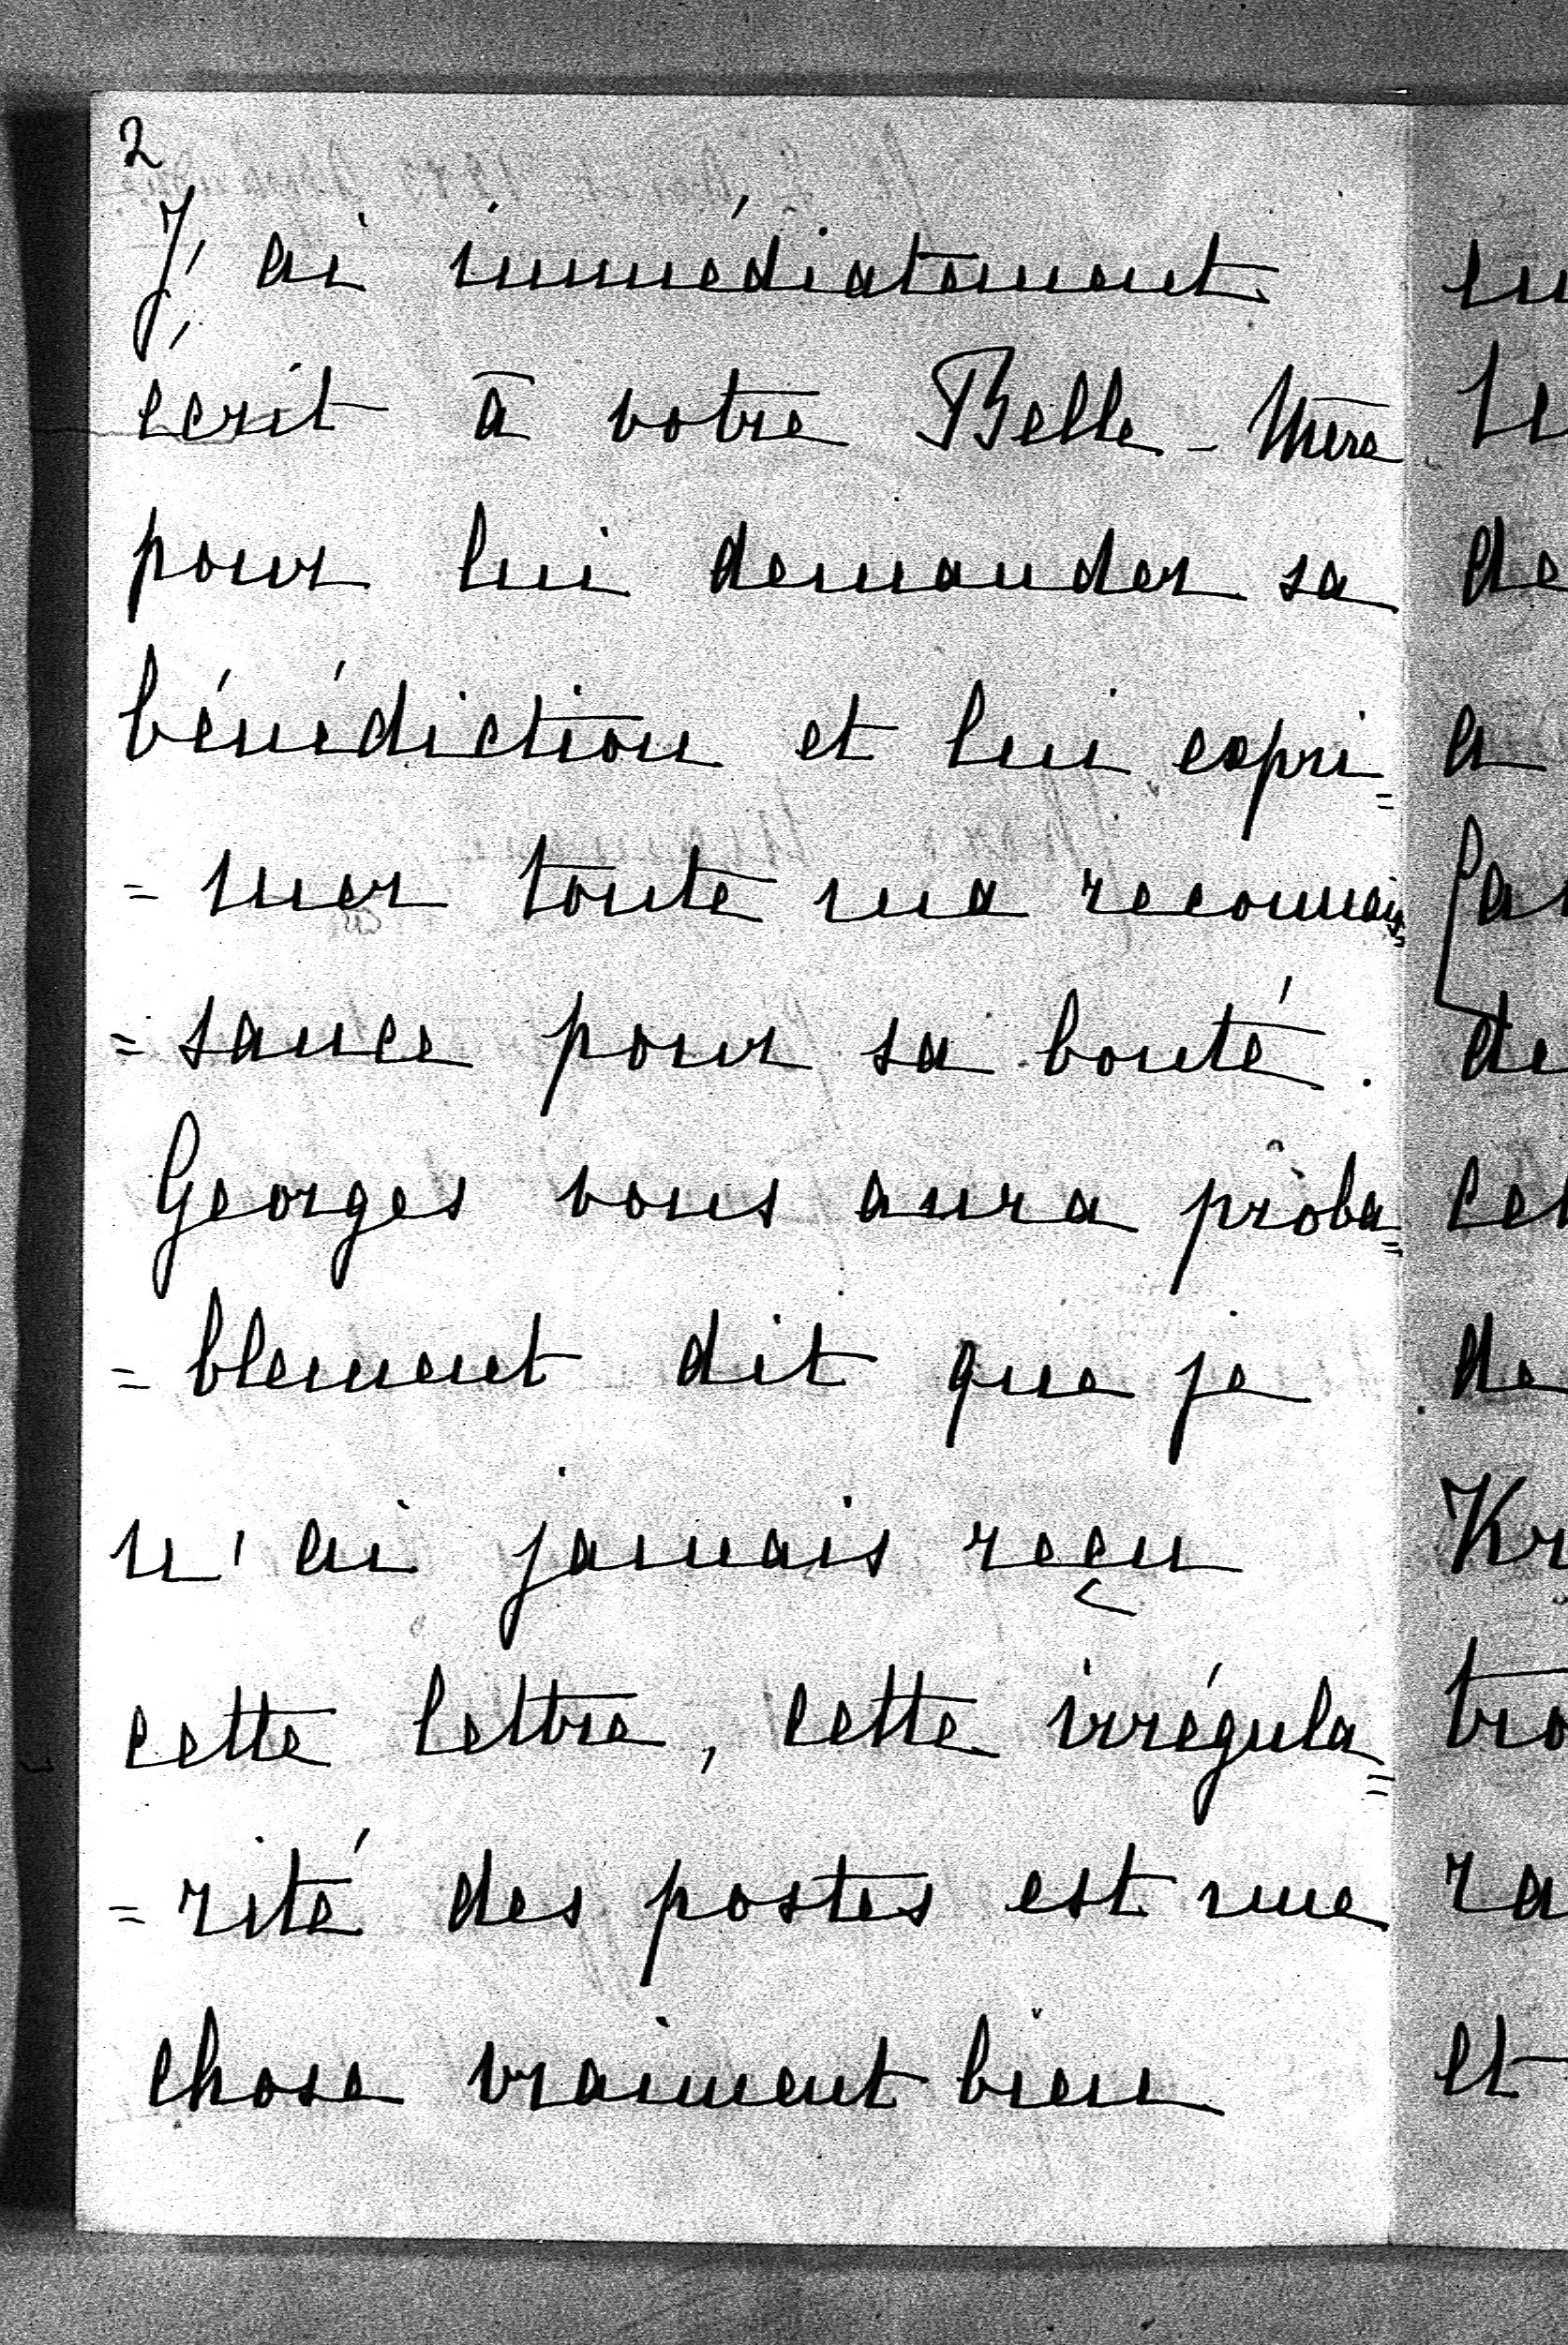 2
J'ai immédiatement
écrit à votre Belle-Mère
pour lui demander sa
bénédiction et lui expri=
=mer toute ma reconnais=
=sance pour sa bonté.
Georges vous aura proba=
=blement dit que je
n'ai jamais reçu
cette lettre, cette irrégula=
=rité des postes est une
chose vraiment bien